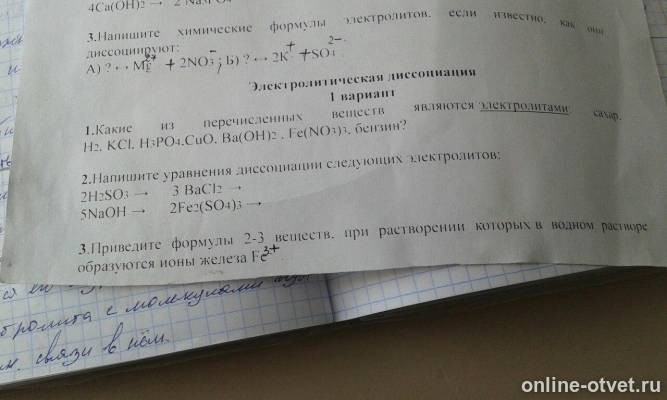 4Ca(OH)2 →
3.Напишите химические формулы электролитов, если известно, как они
диссоциируют:
А) ? ↔ Mg2+ + 2NO3− ; Б) ? ↔ 2K+ + SO4 2−
Электролитическая диссоциация
1 вариант
1.Какие из перечисленных веществ являются электролитами: сахар,
H2, KCl, H3PO4,CuO, Ba(OH)2 , Fe(NO3)3, бензин?
2.Напишите уравнения диссоциации следующих электролитов:
2H2SO3 → 3 BaCl2 →
5NaOH → 2Fe2(SO4)3 →
3.Приведите формулы 2-3 веществ, при растворении которых в водном растворе
образуются ионы железа Fe3+
с молекулами
связи в нём.
online-otvet.ru